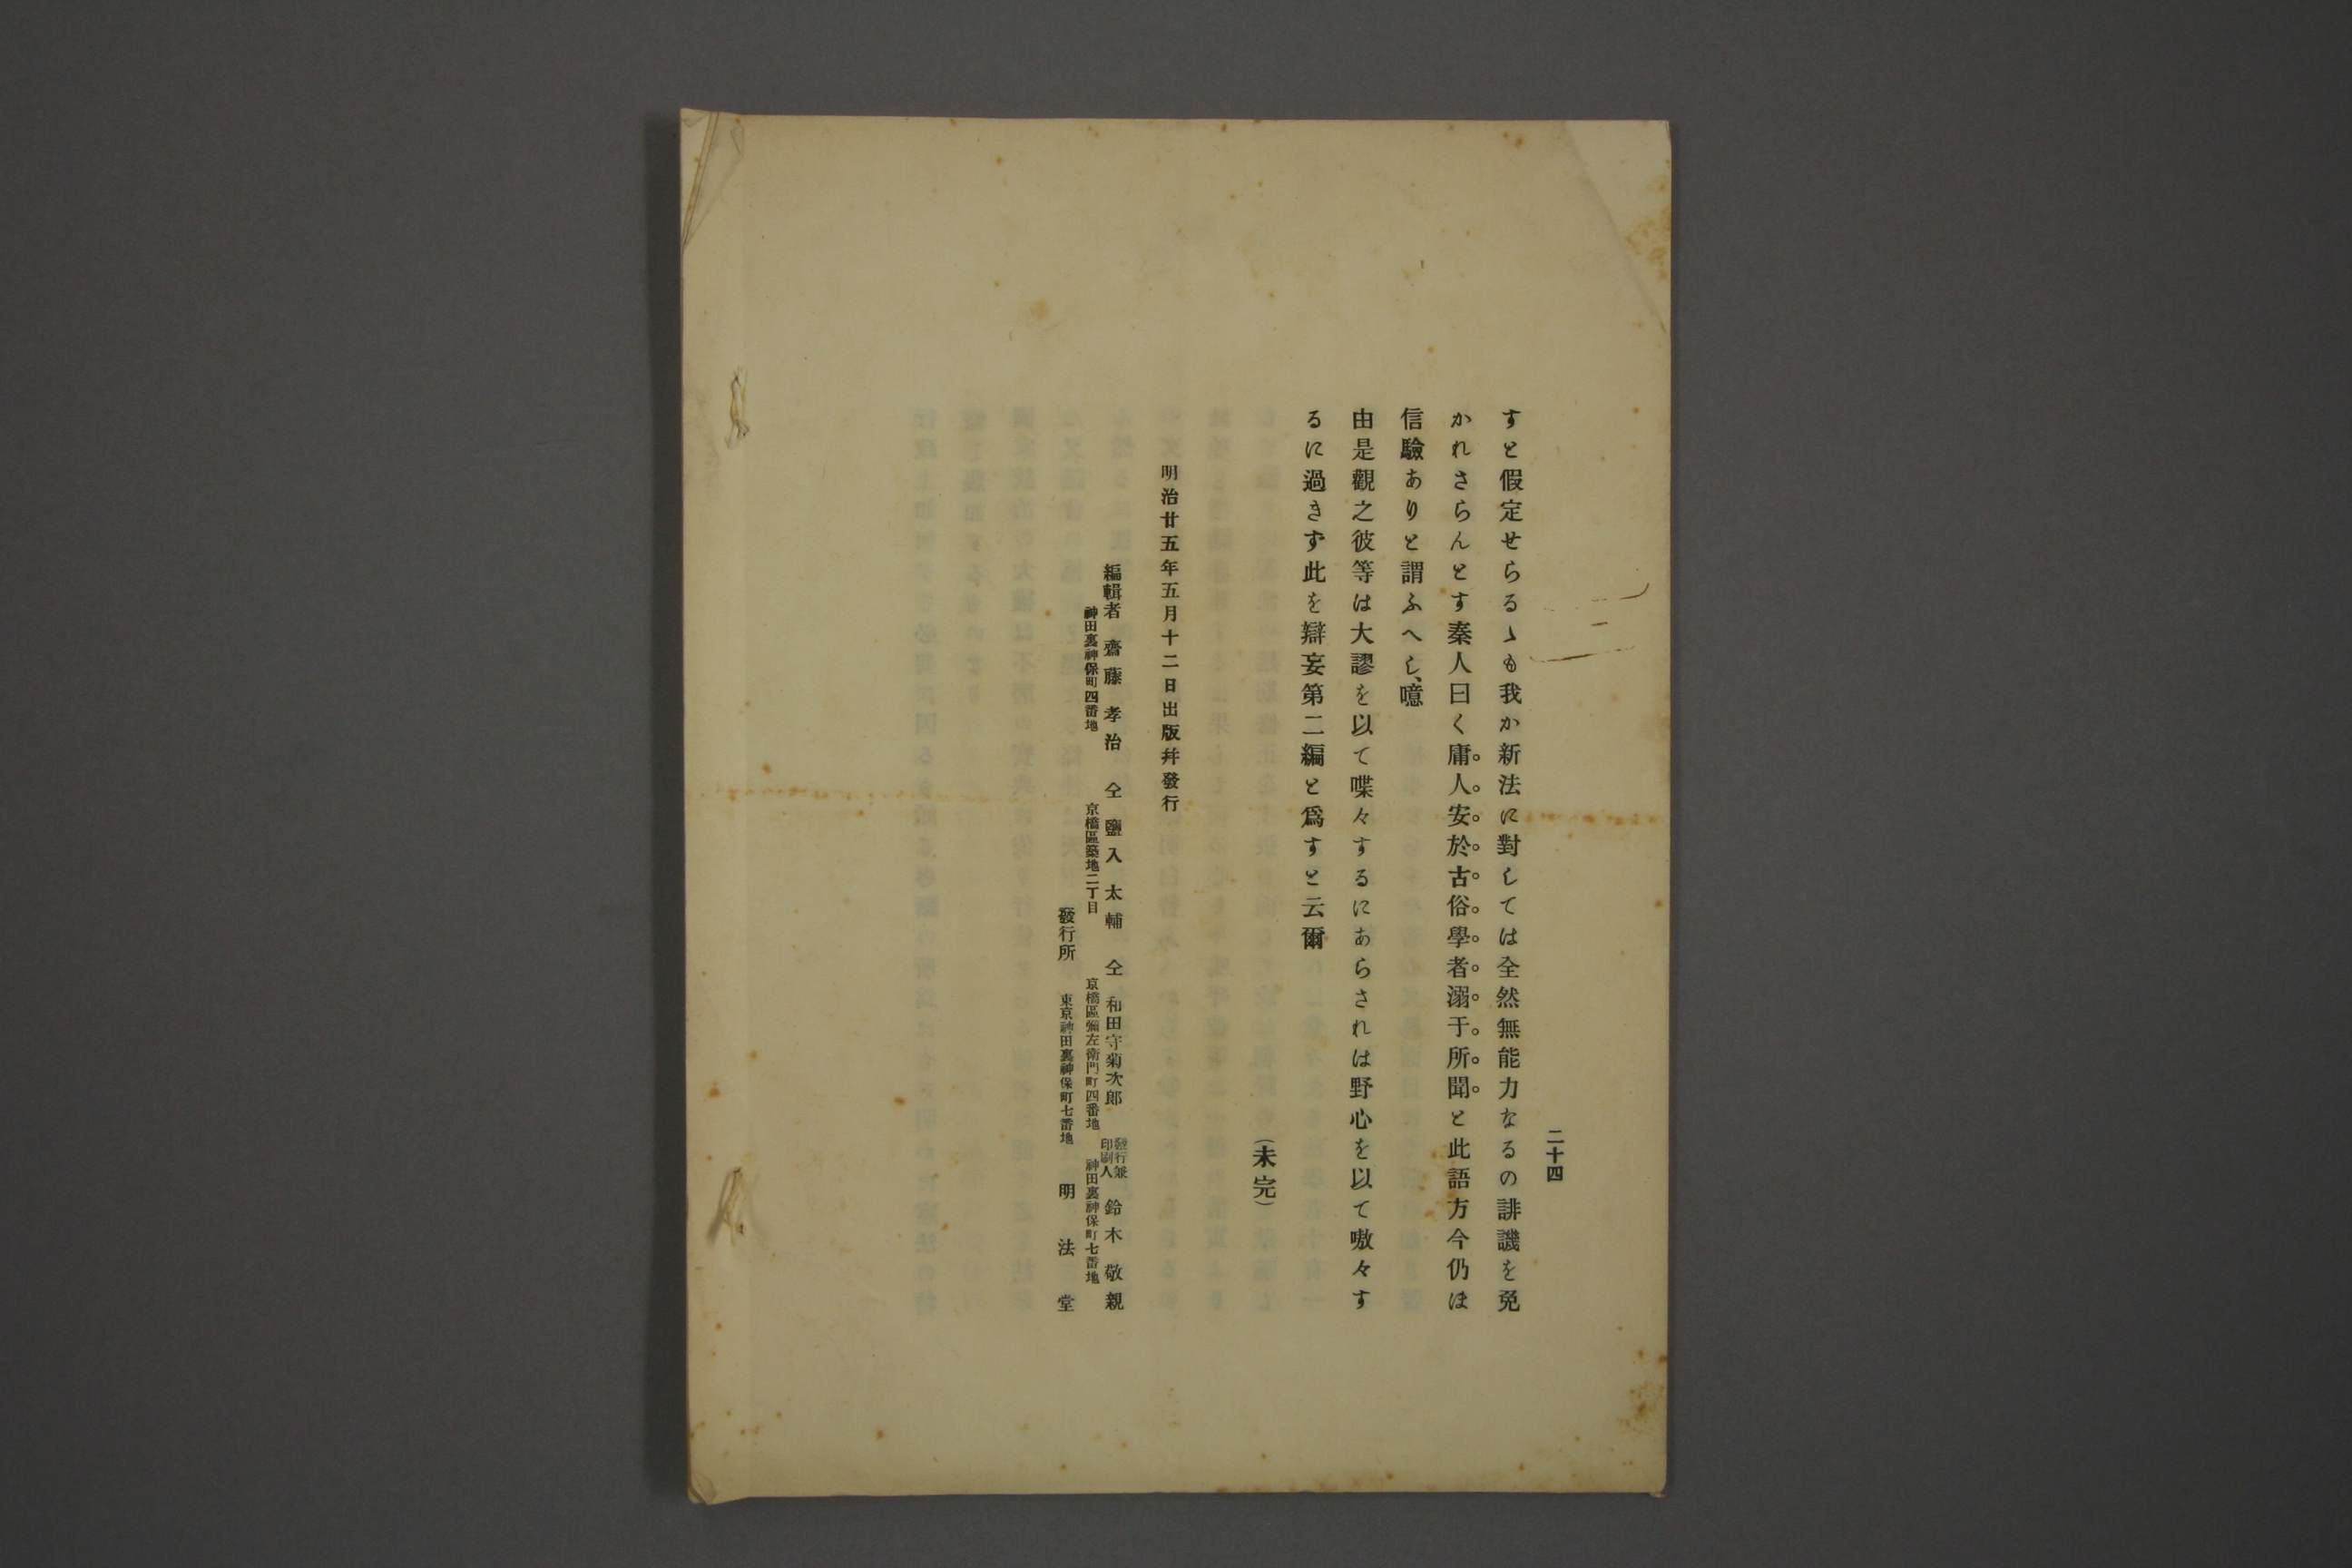 二十四
すと假定せらるゝも我か新法に對しては全然無能力なるの誹譏を免
かれさらんとす秦人曰く庸人安於古俗學者溺于所聞と此語方今仍ほ
信驗ありと謂ふへし、噫
由是觀之彼等は大謬を以て喋々するにあらされは野心を以て嗷々す
るに過きず此を辯妄第二編と爲すと云爾
（未完）
明治廿五年五月十二日出版幷發行
編輯者 齋藤孝治 仝 鹽入太輔 仝 和田守菊次郎 發行兼印刷人 鈴木敬親
神田裏神保町四番地 京橋區築地二丁目 京橋區彌左衛門町四番地 神田裏神保町七番地
發行所 東京神田裏神保町七番地 明法堂